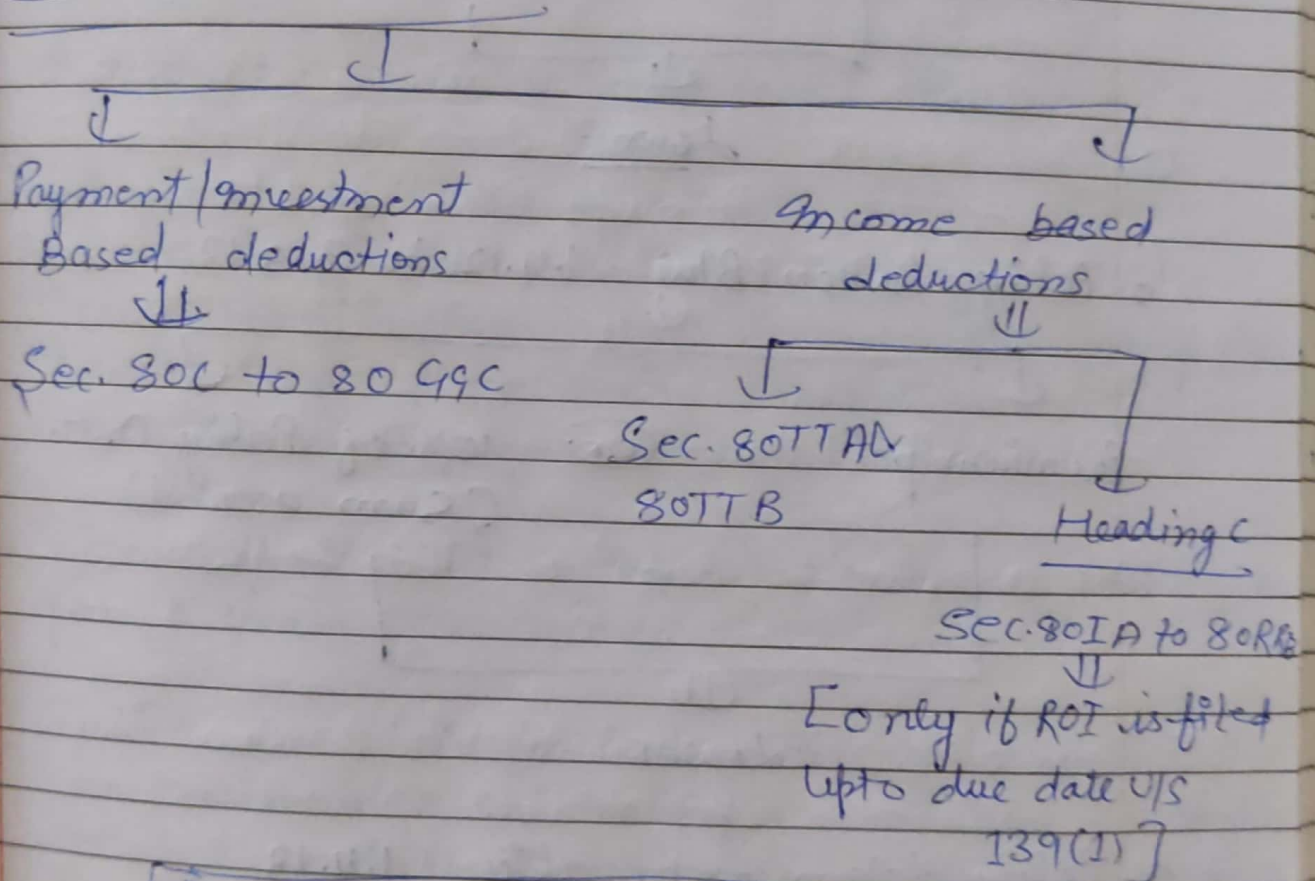 Payment/Investment
Based deductions
Sec. 80C to 80 GGC
Income based
deductions
Sec. 80TTA&
80TTB
Heading C
Sec. 80IA to 80RRB
[only if ROI is filed
upto due date U/S
139(1)]